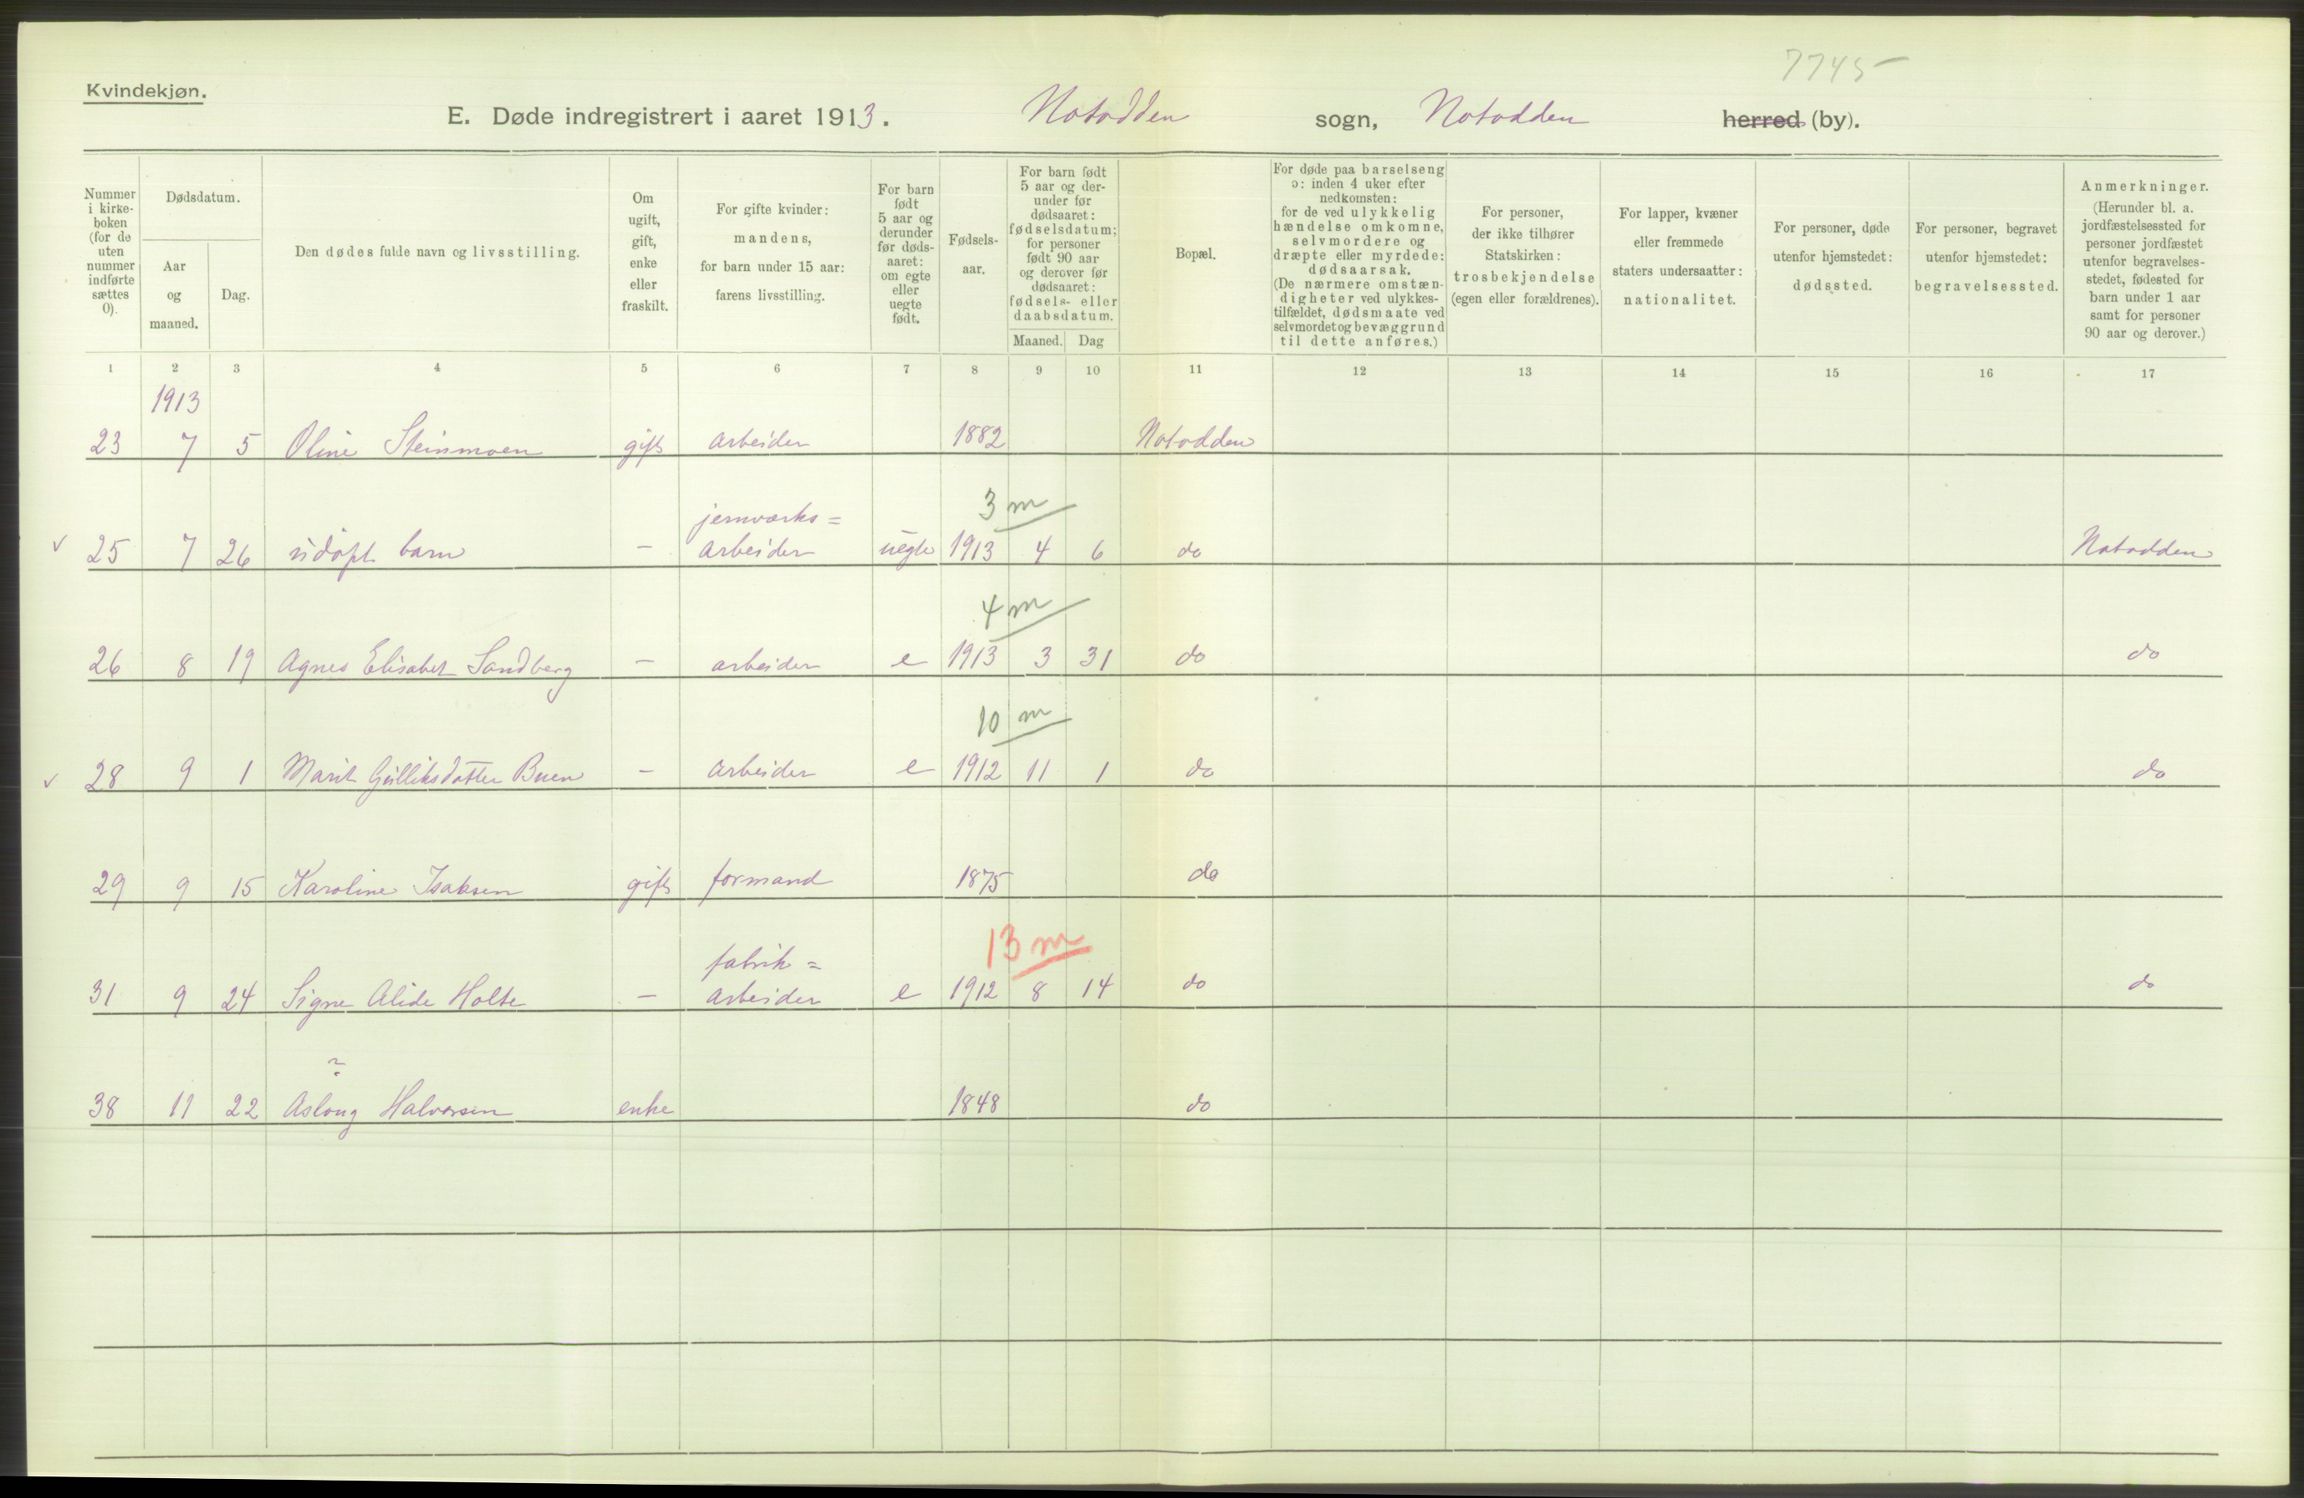 7745
Kvindekjøn.
E. Døde indregistrert i aaret 1913. Notodden sogn, Notodden herred (by).
Nummer i kirke- boken (for de uten nummer indførte sættes 0).
Dødsdatum.
Aar og maaned.
Dag.
Den dødes fulde navn og livsstilling.
Om ugift, gift, enke eller fraskilt.
For gifte kvinder: mandens, for barn under 15 aar: farens livsstilling.
For barn født 5 aar og derunder før døds- aaret: om egte eller uegte født.
Fødsels- aar.
For barn født 5 aar og der- under før dødsaaret: fødselsdatum; for personer født 90 aar og derover før dødsaaret: fødsels- eller daabsdatum.
Maaned. Dag
Bopæl.
For døde paa barselseng ɔ: inden 4 uker efter nedkomsten: for de ved ulykkelig hændelse omkomne, selvmordere og dræpte eller myrdede: dødsaarsak. (De nærmere omstæn- digheter ved ulykkes- tilfældet, dødsmaate ved selvmordet og bevæggrund til dette anføres.)
For personer, der ikke tilhører Statskirken: trosbekjendelse (egen eller forældrenes).
For lapper, kvæner eller fremmede staters undersaatter: nationalitet.
For personer, døde utenfor hjemstedet: dødssted.
For personer, begravet utenfor hjemstedet: begravelsessted.
Anmerkninger. (Herunder bl. a. jordfæstelsessted for personer jordfæstet utenfor begravelses- stedet, fødested for barn under 1 aar samt for personer 90 aar og derover.)
1 2 3 4 5 6 7 8 9 10 11 12 13 14 15 16 17
1913
23 7 5 Oline Steinmoen gift arbeider 1882 Notodden
jernværks= 3 m
25 7 26 udøpt barn – arbeider uegte 1913 4 6 do Notodden
4 m
26 8 19 Agnes Elisabet Sandberg – arbeider e 1913 3 31 do do
10 m
28 9 1 Marit Gulliksdatter Buen – arbeider e 1912 11 1 do do
29 9 15 Karoline Isaksen gift formand 1875 do
fabrik= 13 m
31 9 24 Signe Alide Holte – arbeider e 1912 8 14 do do
38 11 22 Aslaug Halvorsen enke 1848 do